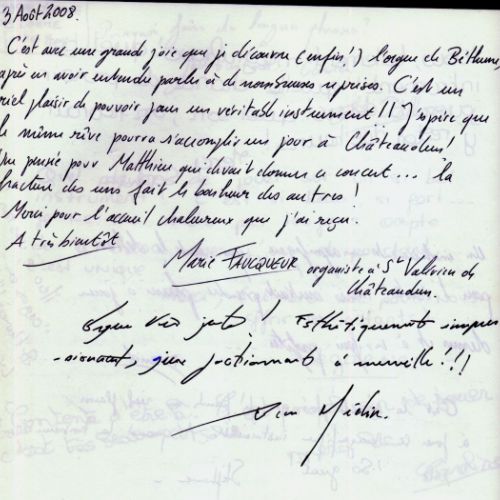 3 Août 2008.
C'est avec une grande joie que je découvre (enfin!) l'orgue de Béthune,
après en avoir entendu parler à de nombreuses reprises. C'est un
réel plaisir de pouvoir jouer un véritable instrument !! J'espère que
le même rêve pourra s'accomplir un jour à Châteaudun!
Une pensée pour Matthieu qui devait donner ce concert... la
fracture des uns fait le bonheur des autres!
Merci pour l'accueil chaleureux que j'ai reçu.
A très bientôt
Marie FAUCQUEUR organiste à St Valérien de
Châteaudun.
Orgue très ! Esthétiquement impres
-sionnant, fonctionnant à merveille!!!